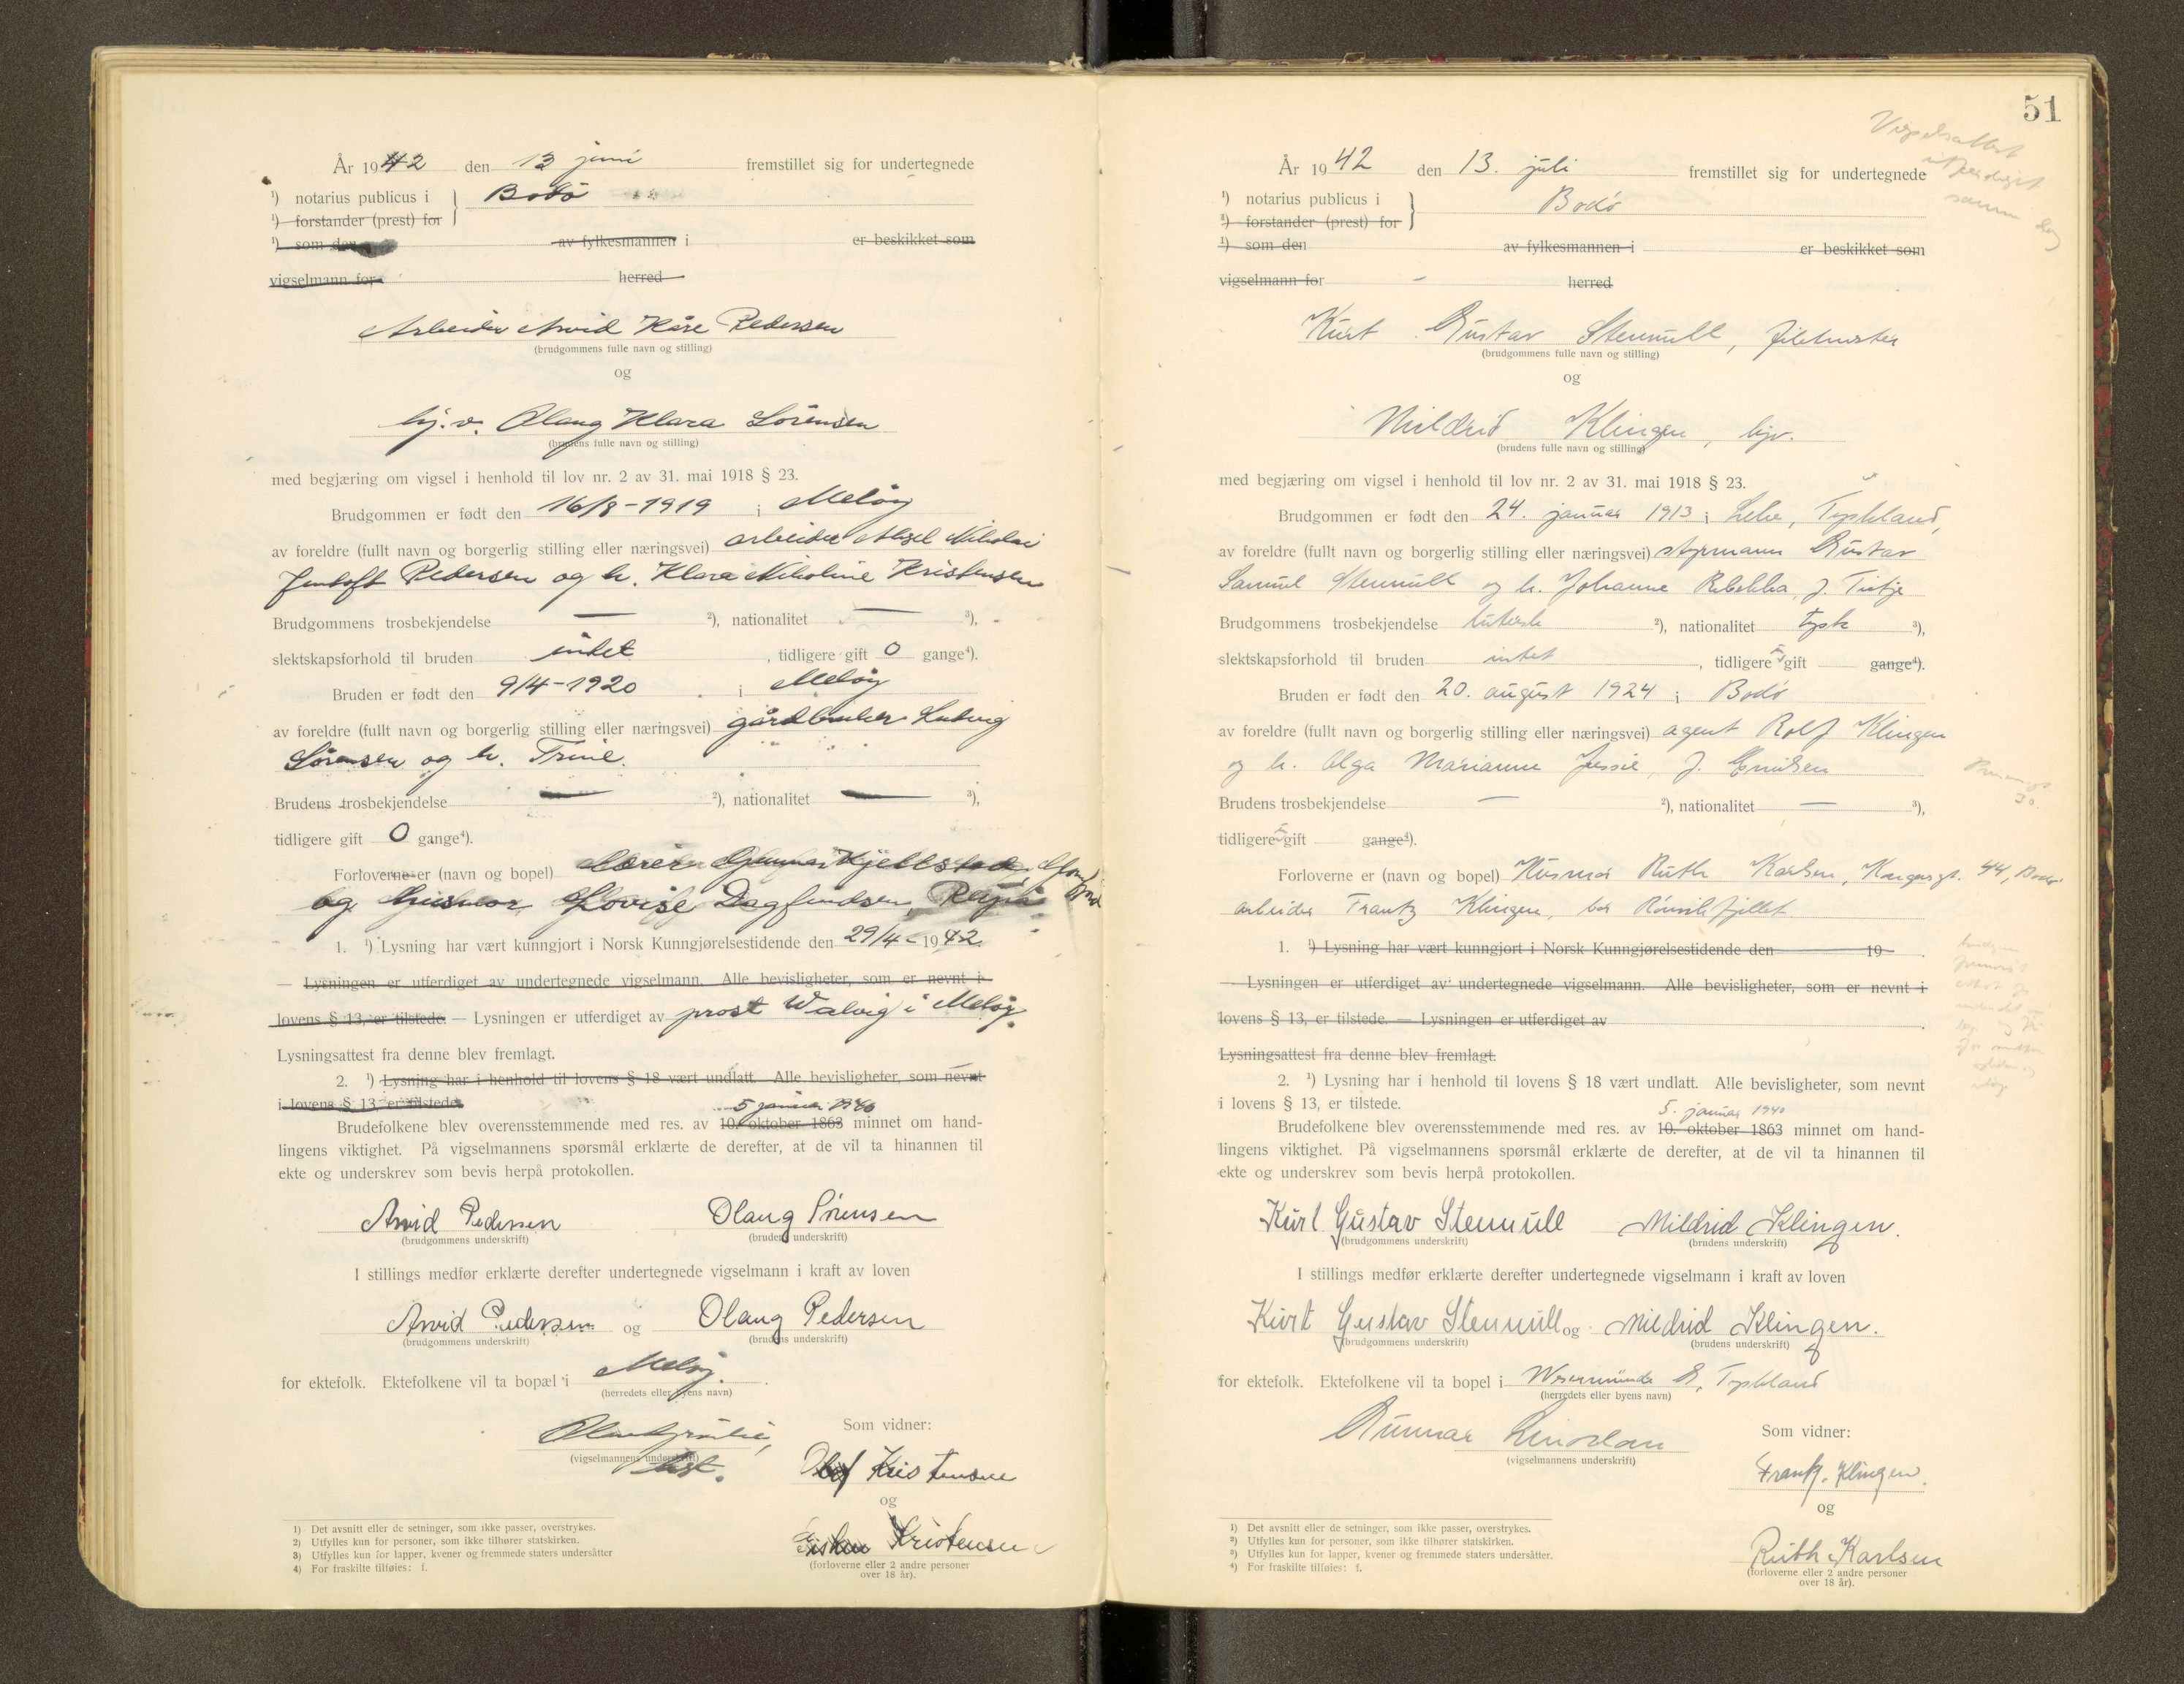 År 1942 den 13 juni fremstillet sig for undertegnede
¹) notarius publicus i Bodö
¹) forstander (prest) for
¹) som den av fylkesmannen i er beskikket som
vigselmann for herred
Arbeider Arvid Kåre Pedersen
(brudgommens fulle navn og stilling)
og
hj.v. Olaug Klara Sörensen
(brudens fulle navn og stilling)
med begjæring om vigsel i henhold til lov nr. 2 av 31. mai 1918 § 23.
Brudgommen er født den 16/8-1919 i Melöy
av foreldre (fullt navn og borgerlig stilling eller næringsvei) arbeider Aksel Nikolai
Jentoft Pedersen og h. Klara Nikoline Kristensen
Brudgommens trosbekjendelse — ²), nationalitet — ³),
slektskapsforhold til bruden intet , tidligere gift 0 gange⁴).
Bruden er født den 9/4-1920 i Melöy
av foreldre (fullt navn og borgerlig stilling eller næringsvei) gårdbruker Ludvig
Sörensen og h. Trine.
Brudens trosbekjendelse — ²), nationalitet — ³),
tidligere gift 0 gange⁴).
Forloverne er (navn og bopel) Sören Gunnar Kjellstad,
og husmor Lovise Dagfindsen, Reipå
1. ¹) Lysning har vært kunngjort i Norsk Kunngjørelsestidende den 29/4-1942.
— Lysningen er utferdiget av undertegnede vigselmann. Alle bevisligheter, som er nevnt i
lovens § 13, er tilstede. — Lysningen er utferdiget av prost Walvig i Melöy.
Lysningsattest fra denne blev fremlagt.
2. ¹) Lysning har i henhold til lovens § 18 vært undlatt. Alle bevisligheter, som nevnt
i lovens § 13, er tilstede.
5 januar 1940
Brudefolkene blev overensstemmende med res. av 10. oktober 1863 minnet om hand-
lingens viktighet. På vigselmannens spørsmål erklærte de derefter, at de vil ta hinannen til
ekte og underskrev som bevis herpå protokollen.
Arvid Pedersen Olaug Sørensen
(brudgommens underskrift) (brudens underskrift)
I stillings medfør erklærte derefter undertegnede vigselmann i kraft av loven
Arvid Pedersen og Olaug Pedersen
(brudgommens underskrift) (brudens underskrift)
for ektefolk. Ektefolkene vil ta bopæl i Melöy.
(herredets eller byens navn)
Som vidner:
(vigselmannens underskrift)
Olaf Kristensen
og
Kristensen
(forloverne eller 2 andre personer
over 18 år).
1) Det avsnitt eller de setninger, som ikke passer, overstrykes.
2) Utfylles kun for personer, som ikke tilhører statskirken.
3) Utfylles kun for lapper, kvener og fremmede staters undersåtter
4) For fraskilte tilføies: f.
51
Vigselsattest
utferdiget
samme dag
År 1942 den 13. juli fremstillet sig for undertegnede
¹) notarius publicus i Bodö
²) forstander (prest) for
¹) som den av fylkesmannen i er beskikket som
vigselmann for herred
Kurt Gustav Stemmull,
(brudgommens fulle navn og stilling)
og
Mildrid Klingen, hjv.
(brudens fulle navn og stilling)
med begjæring om vigsel i henhold til lov nr. 2 av 31. mai 1918 § 23.
Brudgommen er født den 24. januar 1913 i Lehe, Tyskland,
av foreldre (fullt navn og borgerlig stilling eller næringsvei) styrmann Gustav
Samuel Stemmull og h. Johanne Rebekka, f. Tietje
Brudgommens trosbekjendelse luthersk ²), nationalitet tysk ³),
slektskapsforhold til bruden intet , tidligere gift gange⁴).
Bruden er født den 20. august 1924 i Bodö
av foreldre (fullt navn og borgerlig stilling eller næringsvei) agent Rolf Klingen
og h. Olga Marianne Jessie, f. Emilsen
Brudens trosbekjendelse — ²), nationalitet — ³),
tidligere gift gange⁴).
Forloverne er (navn og bopel) Husmor Ruth Karlsen, Kongensgt. 44, Bodö
arbeider Frantz Klingen, bor Rönvikfjellet
1. ¹) Lysning har vært kunngjort i Norsk Kunngjørelsestidende den 19 .
— Lysningen er utferdiget av undertegnede vigselmann. Alle bevisligheter, som er nevnt i
lovens § 13, er tilstede. — Lysningen er utferdiget av
Lysningsattest fra denne blev fremlagt.
2. ¹) Lysning har i henhold til lovens § 18 vært undlatt. Alle bevisligheter, som nevnt
i lovens § 13, er tilstede.
5. januar 1940
Brudefolkene blev overensstemmende med res. av 10. oktober 1863 minnet om hand-
lingens viktighet. På vigselmannens spørsmål erklærte de derefter, at de vil ta hinannen til
ekte og underskrev som bevis herpå protokollen.
Kurt Gustav Stemmull Mildrid Klingen.
(brudgommens underskrift) (brudens underskrift)
I stillings medfør erklærte derefter undertegnede vigselmann i kraft av loven
Kurt Gustav Stemmull og Mildrid Klingen.
(brudgommens underskrift) (brudens underskrift)
for ektefolk. Ektefolkene vil ta bopel i Wesermünde G, Tyskland
(herredets eller byens navn)
Gunnar
Som vidner:
(vigselmannens underskrift)
Frantz Klingen.
og
Ruth Karlsen
(forloverne eller 2 andre personer
over 18 år).
¹) Det avsnitt eller de setninger, som ikke passer, overstrykes.
²) Utfylles kun for personer, som ikke tilhører statskirken.
³) Utfylles kun for lapper, kvener og fremmede staters undersåtter.
⁴) For fraskilte tilføies: f.